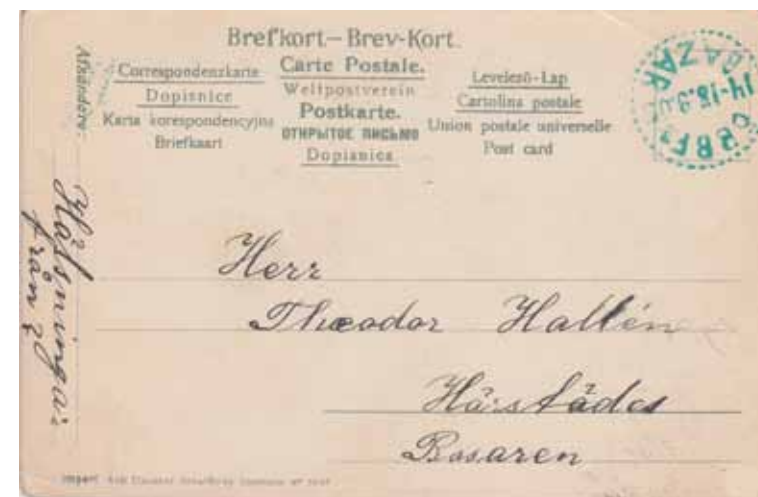 Brefkort–Brev-Kort.
Correspondenzkarte
Dopisnice
Karta korespondencyjna
Briefkaart
Carte Postale.
Weltpostverein
Postkarte.
ОТКРЫТОЕ ПИСЬМО
Dopisnica
Levelező-Lap
Cartolina postale
Union postale universelle
Post card
BAZAR
Afsändare
Hälsningar
från
Herr
Theodor Hallén
Härstädes
Basaren
Import